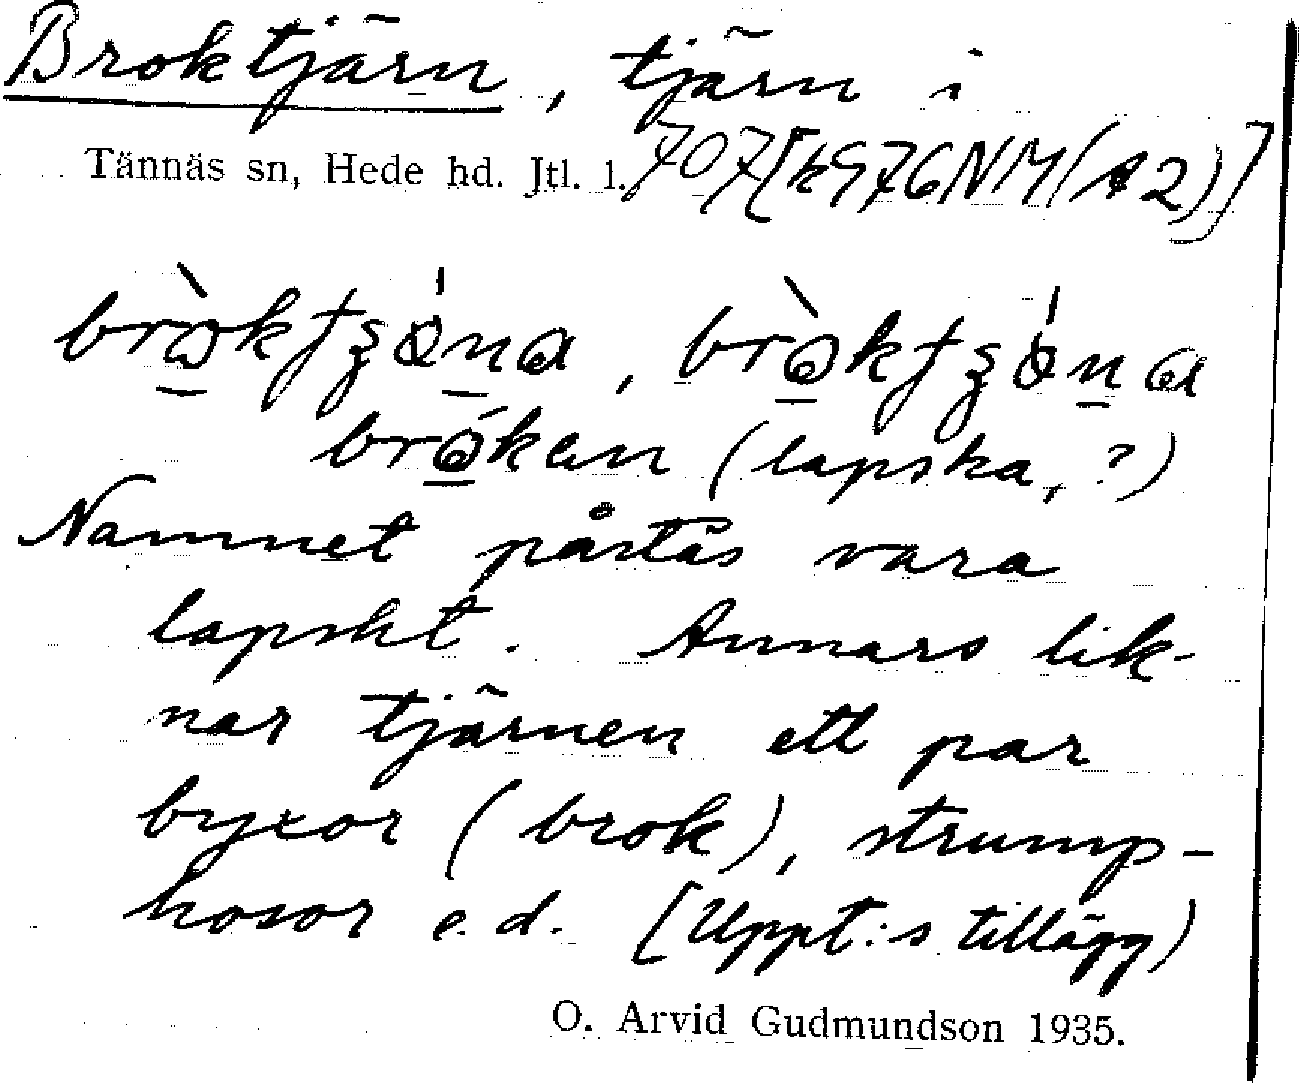 Broktjärn, tjärn i
Tännäs sn, Hede hd. Jtl. l. 707[k976NM(A2)]
lapska, ?)
Namnet påstås vara
lapskt. Annars lik-
nar tjärnen ett par
byxor (brok), strump-
hosor e.d. [Uppt:s tillägg)
O. Arvid Gudmundson 1935.